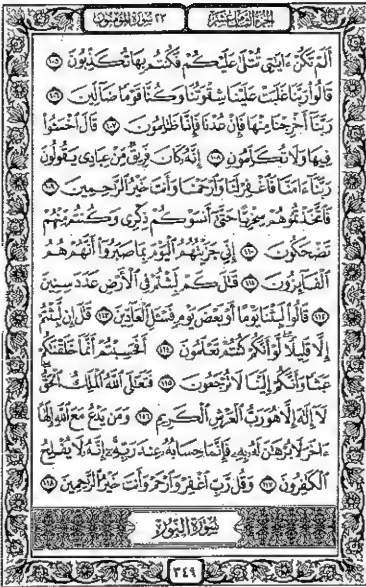 الجزء الثامن عشر ٢٣ سورة المؤمنون
أَلَمْ تَكُنْ ءَايَٰتِى تُتْلَىٰ عَلَيْكُمْ فَكُنتُم بِهَا تُكَذِّبُونَ ١٠٥
قَالُوا۟ رَبَّنَا غَلَبَتْ عَلَيْنَا شِقْوَتُنَا وَكُنَّا قَوْمًا ضَآلِّينَ ١٠٦
رَبَّنَآ أَخْرِجْنَا مِنْهَا فَإِنْ عُدْنَا فَإِنَّا ظَٰلِمُونَ ١٠٧ قَالَ ٱخْسَـُٔوا۟
فِيهَا وَلَا تُكَلِّمُونِ ١٠٨ إِنَّهُۥ كَانَ فَرِيقٌ مِّنْ عِبَادِى يَقُولُونَ
رَبَّنَآ ءَامَنَّا فَٱغْفِرْ لَنَا وَٱرْحَمْنَا وَأَنتَ خَيْرُ ٱلرَّٰحِمِينَ ١٠٩
فَٱتَّخَذْتُمُوهُمْ سِخْرِيًّا حَتَّىٰٓ أَنسَوْكُمْ ذِكْرِى وَكُنتُم مِّنْهُمْ
تَضْحَكُونَ ١١٠ إِنِّى جَزَيْتُهُمُ ٱلْيَوْمَ بِمَا صَبَرُوٓا۟ أَنَّهُمْ هُمُ
ٱلْفَآئِزُونَ ١١١ قَٰلَ كَمْ لَبِثْتُمْ فِى ٱلْأَرْضِ عَدَدَ سِنِينَ
١١٢ قَالُوا۟ لَبِثْنَا يَوْمًا أَوْ بَعْضَ يَوْمٍ فَسْـَٔلِ ٱلْعَآدِّينَ ١١٣ قَٰلَ إِن لَّبِثْتُمْ
إِلَّا قَلِيلًا لَّوْ أَنَّكُمْ كُنتُمْ تَعْلَمُونَ ١١٤ أَفَحَسِبْتُمْ أَنَّمَا خَلَقْنَٰكُمْ
عَبَثًا وَأَنَّكُمْ إِلَيْنَا لَا تُرْجَعُونَ ١١٥ فَتَعَٰلَى ٱللَّهُ ٱلْمَلِكُ ٱلْحَقُّ
لَآ إِلَٰهَ إِلَّا هُوَ رَبُّ ٱلْعَرْشِ ٱلْكَرِيمِ ١١٦ وَمَن يَدْعُ مَعَ ٱللَّهِ إِلَٰهًا
ءَاخَرَ لَا بُرْهَٰنَ لَهُۥ بِهِۦ فَإِنَّمَا حِسَابُهُۥ عِندَ رَبِّهِۦٓ إِنَّهُۥ لَا يُفْلِحُ
ٱلْكَٰفِرُونَ ١١٧ وَقُل رَّبِّ ٱغْفِرْ وَٱرْحَمْ وَأَنتَ خَيْرُ ٱلرَّٰحِمِينَ ١١٨
سُورَةُ النُّورِ
٣٤٩